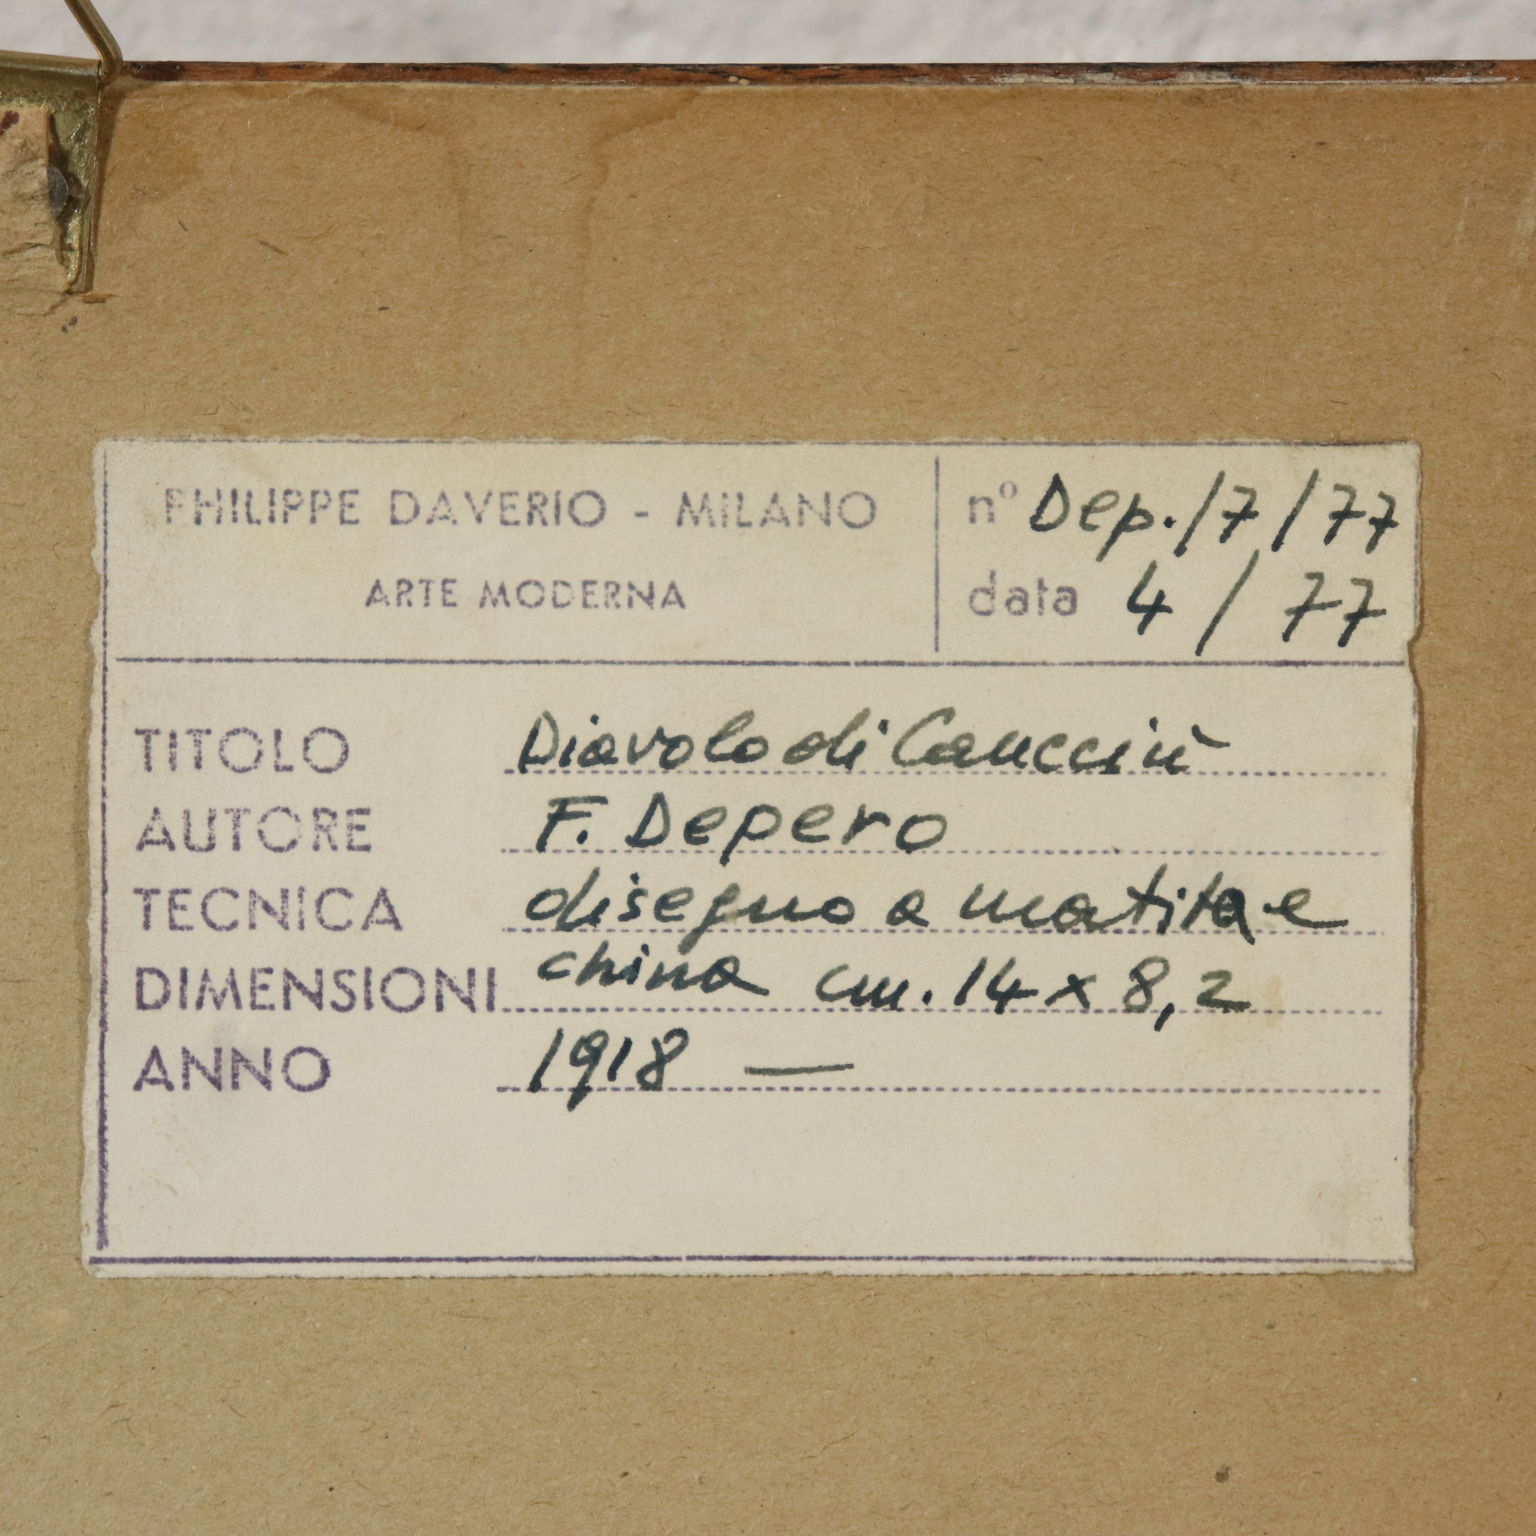 PHILIPPE DAVERIO - MILANO
ARTE MODERNA
n° Dep./7/77
data 4/77
TITOLO Diavolo di Caucciù
AUTORE F. Depero
TECNICA disegno a matita e
china
DIMENSIONI cm. 14 x 8,2
ANNO 1918 —